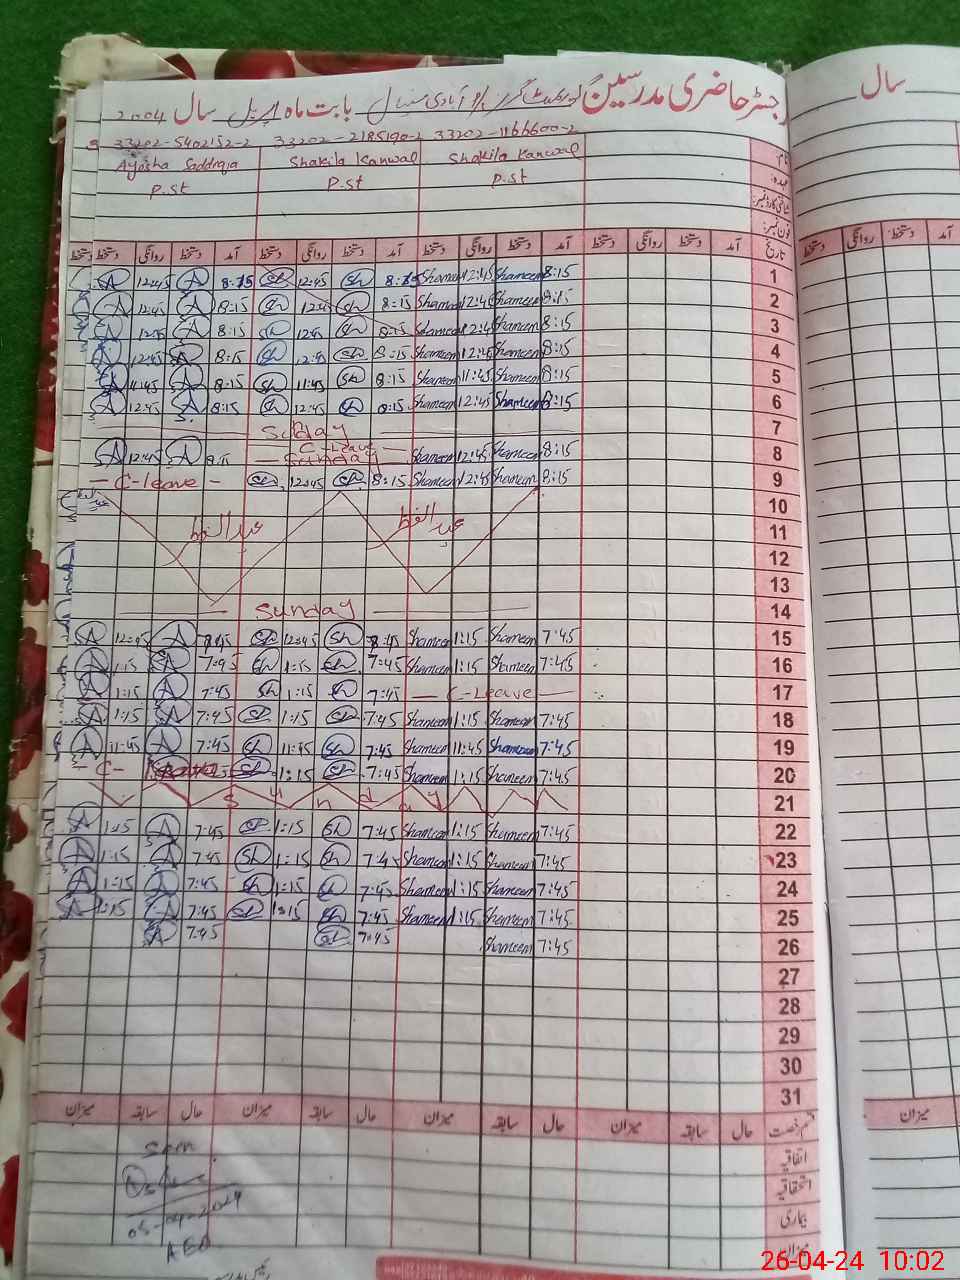 رجسٹر حاضری مدرسین گورنمنٹ گرلز بابت ماہ اپریل سال 2004
سال
33202-5402152-2 33202-2185190-2 33202-1166600-2
نام
Ayesha Saddiqa Shakila Kanwal Shakila Kanwal
عہدہ:
P.st P.st P.st
شناختی کارڈ نمبر:
فون نمبر:
دستخط دستخط روانگی دستخط آمد دستخط روانگی دستخط آمد دستخط روانگی دستخط آمد دستخط روانگی دستخط آمد تاریخ
دستخط روانگی دستخط آمد
A 12:45 A 8:15 Sh 12:45 Sh 8:15 Shameem 12:45 Shameem 8:15 1
A 12:45 A 8:15 Sh 12:45 Sh 8:15 Shameem 12:45 Shameem 8:15 2
A 12:45 A 8:15 Sh 12:45 Sh 8:15 Shameem 12:45 Shameem 8:15 3
A 12:45 A 8:15 Sh 12:45 Sh 8:15 Shameem 12:45 Shameem 8:15 4
A 11:45 A 8:15 Sh 11:45 Sh 8:15 Shameem 11:45 Shameem 8:15 5
A 12:45 A 8:15 Sh 12:45 Sh 8:15 Shameem 12:45 Shameem 8:15 6
Sunday 7
A 12:45 A 8:15 C-Leave Shameem 12:45 Shameem 8:15 8
C-leave Sh 12:45 Sh 8:15 Shameem 12:45 Shameem 8:15 9
10
عید الفطر عید الفطر 11
12
13
Sunday 14
A 12:45 A 7:45 Sh 12:45 Sh 7:45 Shameem 1:15 Shameem 7:45 15
A 1:15 A 7:45 Sh 1:15 Sh 7:45 Shameem 1:15 Shameem 7:45 16
A 1:15 A 7:45 Sh 1:15 Sh 7:45 C-Leave 17
A 1:15 A 7:45 Sh 1:15 Sh 7:45 Shameem 1:15 Shameem 7:45 18
A 11:45 A 7:45 Sh 11:45 Sh 7:45 Shameem 11:45 Shameem 7:45 19
C- Sh 1:15 Sh 7:45 Shameem 1:15 Shameem 7:45 20
S u n d a y 21
A 1:15 A 7:45 Sh 1:15 Sh 7:45 Shameem 1:15 Shameem 7:45 22
A 1:15 A 7:45 Sh 1:15 Sh 7:45 Shameem 1:15 Shameem 7:45 23
A 1:15 A 7:45 Sh 1:15 Sh 7:45 Shameem 1:15 Shameem 7:45 24
A 1:15 A 7:45 Sh 1:15 Sh 7:45 Shameem 1:15 Shameem 7:45 25
A 7:45 Sh 7:45 Shameem 7:45 26
27
28
29
30
31
میزان سابقہ حال میزان سابقہ حال میزان سابقہ حال میزان سابقہ حال قسم رخصت
میزان
اتفاقیہ
استحقاقیہ
بیماری
میزان
Seen
05-04-2024
AEO
26-04-24 10:02